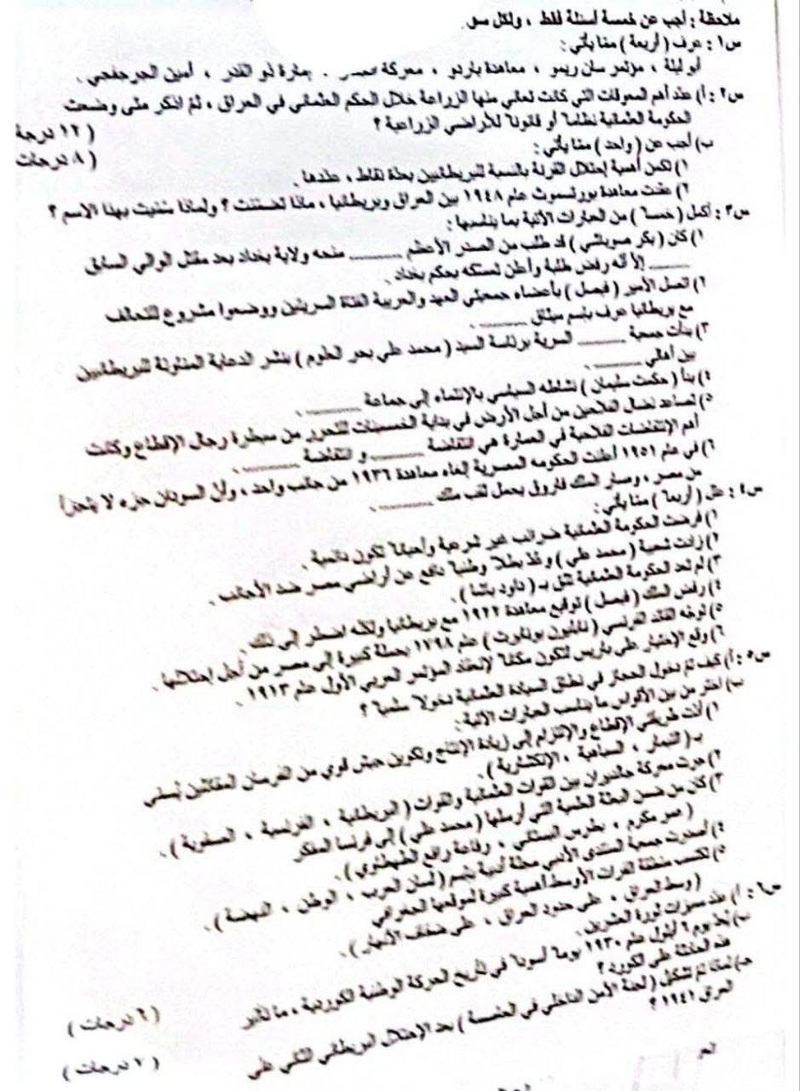 ملاحظة : أجب عن خمسة أسئلة فقط ، ولكل سؤ
س١ : عرف ( أربعة ) مما يأتي :
أبو ليلة ، مؤتمر سان ريمو ، معاهدة باردو ، معركة ، إمارة ذو القدر ، أمين الجرجفجي .
س٢ : أ) عدد أهم المعوقات التي كانت تعاني منها الزراعة خلال الحكم العثماني في العراق ، ثم اذكر متى وضعت
الحكومة العثمانية نظاماً أو قانوناً للأراضي الزراعية ؟
( ١٢ درجة
ب) أجب عن ( واحد ) مما يأتي :
( ٨ درجات
١) تكمن أهمية إحتلال القرنة بالنسبة للبريطانيين بعدة نقاط ، عددها .
٢) عقدت معاهدة بورتسموث عام ١٩٤٨ بين العراق وبريطانيا ، ماذا تضمنت ؟ ولماذا سميت بهذا الاسم ؟
س٣ : أكمل ( خمساً ) من العبارات الآتية بما يناسبها :
١) كان ( بكر صوباشي ) قد طلب من الصدر الأعظم ______ منحه ولاية بغداد بعد مقتل الوالي السابق
______ إلا أنه رفض طلبه وأعلن تمسكه بحكم بغداد .
٢) اتصل الأمير ( فيصل ) بأعضاء جمعيتي العهد والعربية الفتاة السريتين ووضعوا مشروع للتحالف
مع بريطانيا عرف بإسم ميثاق ______ .
٣) بدأت جمعية ______ السرية برئاسة السيد ( محمد علي بحر العلوم ) بنشر الدعاية المناوئة للبريطانيين
بين أهالي ______ .
٤) بدأ ( حكمت سليمان ) نشاطه السياسي بالإنتماء إلى جماعة ______ .
٥) تصاعد نضال الفلاحين من أجل الأرض في بداية الخمسينات للتحرر من سيطرة رجال الإقطاع وكانت
أهم الإنتفاضات الفلاحية في العمارة هي انتفاضة ______ و انتفاضة ______ .
٦) في عام ١٩٥١ أعلنت الحكومة المصرية إلغاء معاهدة ١٩٣٦ من جانب واحد ، وأن السودان جزء لا يتجزأ
من مصر ، وصار الملك فاروق يحمل لقب ملك ______ .
س٤ : علل ( أربعاً ) مما يأتي :
١) فرضت الحكومة العثمانية ضرائب غير شرعية وأحياناً تكون دائمية .
٢) زادت شعبية ( محمد علي ) وعُدّ بطلاً وطنياً دافع عن أراضي مصر ضد الأجانب .
٣) لم تعد الحكومة العثمانية تثق بـ ( داود باشا ) .
٤) رفض الملك ( فيصل ) توقيع معاهدة ١٩٢٢ مع بريطانيا ولكنه اضطر إلى ذلك .
٥) توجه القائد الفرنسي ( نابليون بونابرت ) عام ١٧٩٨ بحملة كبيرة إلى مصر من أجل إحتلالها .
٦) وقع الإختيار على باريس لتكون مكاناً لإنعقاد المؤتمر العربي الأول عام ١٩١٣ .
س٥ : أ) كيف تم دخول الحجاز في نطاق السيادة العثمانية دخولاً سلمياً ؟
ب) اختر من بين الأقواس ما يناسب العبارات الآتية :
١) أدت طريقتي الإقطاع والإلتزام إلى زيادة الإنتاج وتكوين جيش قوي من الفرسان المقاتلين يُسمى
بـ ( التيمار ، السباهية ، الإنكشارية ) .
٢) جرت معركة جالديران بين القوات العثمانية والقوات ( البريطانية ، الفرنسية ، الصفوية ) .
٣) كان من ضمن البعثة العلمية التي أرسلها ( محمد علي ) إلى فرنسا المفكر
( عمر مكرم ، بطرس البستاني ، رفاعة رافع الطهطاوي ) .
٤) أصدرت جمعية المنتدى الأدبي مجلة أدبية بإسم ( لسان العرب ، الوطن ، النهضة ) .
٥) تكتسب منطقة الفرات الأوسط أهمية كبيرة لموقعها الجغرافي
( وسط العراق ، على حدود العراق ، على ضفاف الأنهار ) .
س٦ : أ) عدد مميزات ثورة العشرين .
ب) يُعد يوم ٦ أيلول عام ١٩٣٠ يوماً أسوداً في تأريخ الحركة الوطنية الكوردية ، ما تأثير
هذه الحادثة على الكورد ؟
( ٦ درجات )
جـ) لماذا تم تشكيل ( لجنة الأمن الداخلي في العاصمة ) بعد الإحتلال البريطاني الثاني على
العراق ١٩٤١ ؟
( ٧ درجات )